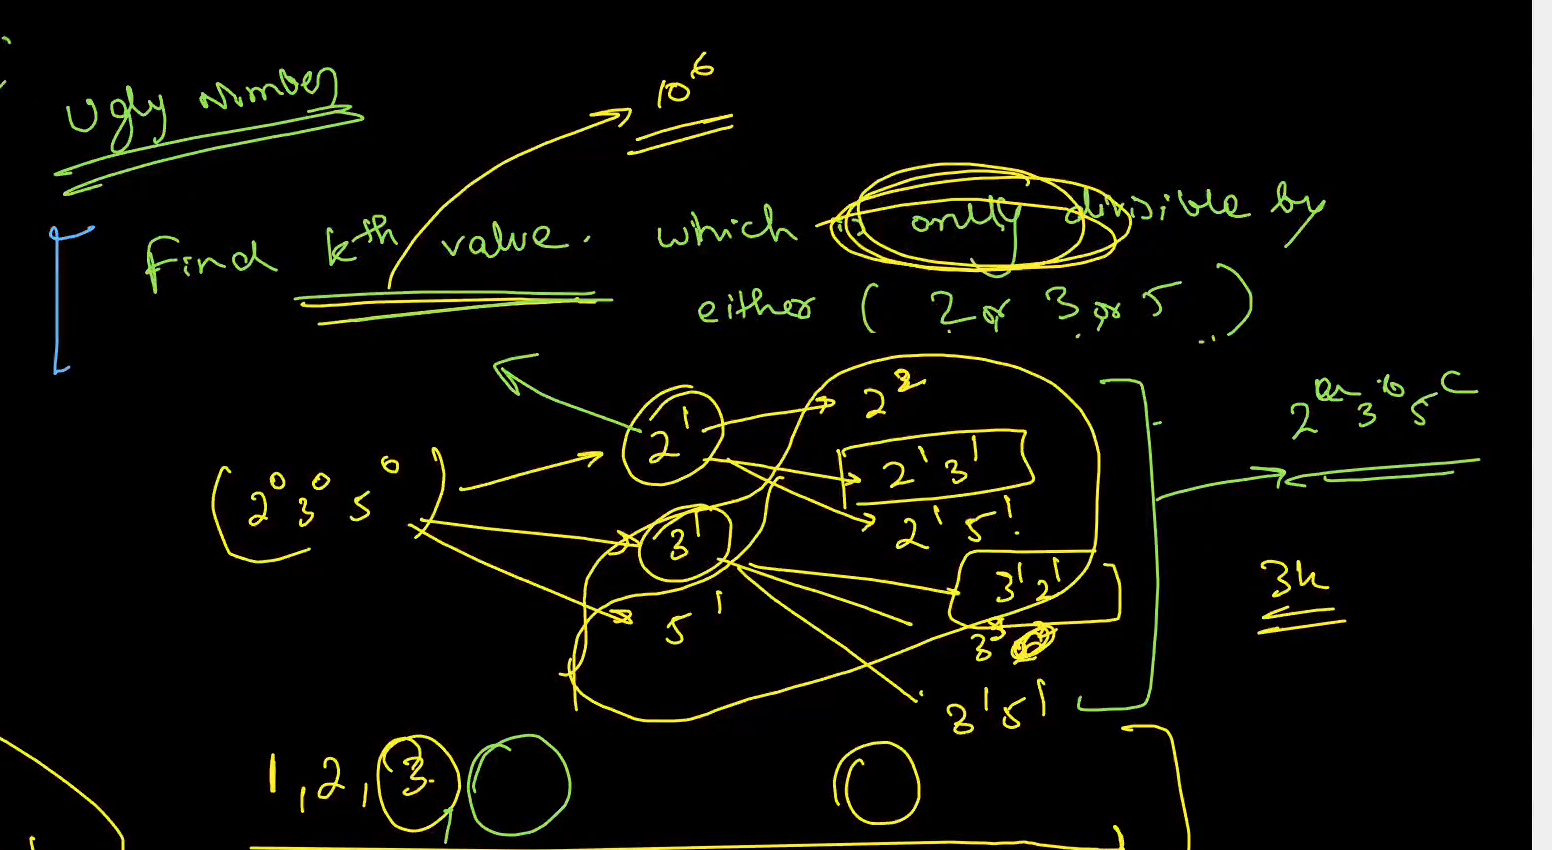 Ugly Number
10^6
Find kth value. which is only divisible by
either ( 2 or 3 or 5 )
2^2
2^a 3^b 5^c
2^1
2^1 3^1
(2^0 3^0 5^0)
2^1 5^1
3^1
3^1 2^1
3k
5^1
3^3
3^1 5^1
1, 2, 3,